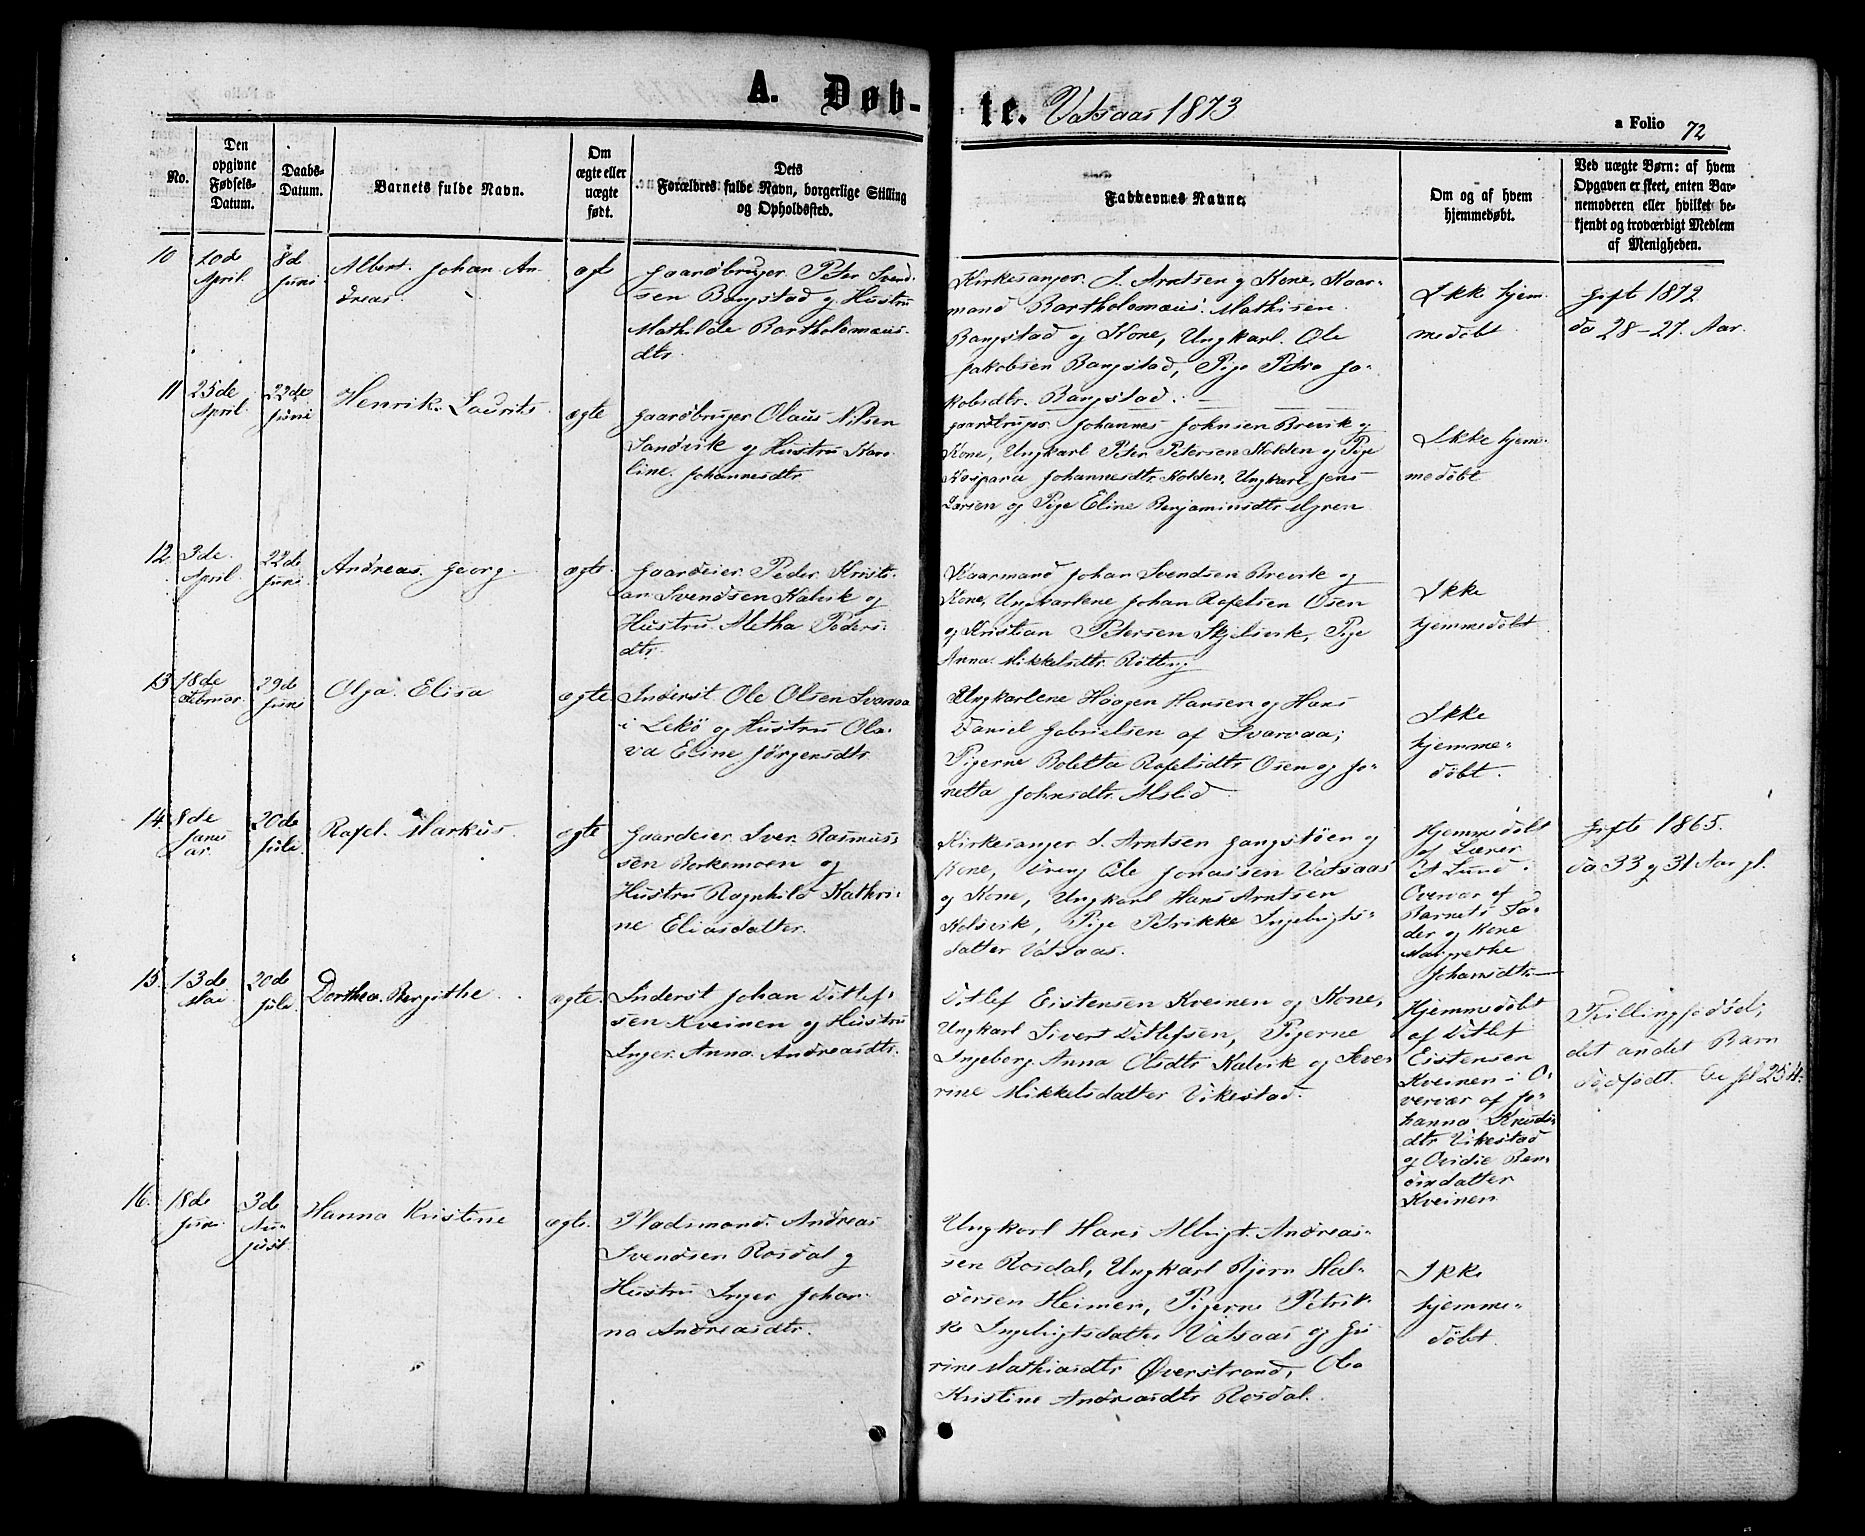 A. Døb-te. Vatsaas 1873
a Folio 72
No.
Den opgivne Fødsels-Datum.
Daabs-Datum.
Barnets fulde Navn.
Om ægte eller uægte født.
Dets Forældres fulde Navn, borgerlige Stilling og Opholdssted.
Faddernes Navne.
Om og af hvem hjemmedøbt.
Ved uægte Børn: af hvem Opgaven er skeet, enten Barnemoderen eller hvilket bekjendt og troværdigt Medlem af Menigheden.
10
10de April
8d Juni
Albert Johan An-
dreas.
ægt
Gaardbruger Peter Svend-
sen Bangstad og Hustru
Mathilde Bartholomæus-
dtr.
Kirkesanger J. Arntsen og Kone, Kaar-
mand Bartholomæus Mathisen
Bangstad og Kone, Ungkarl Ole
Jakobsen Bangstad, Pige Petra Ja-
kobsdtr. Bangstad.
Ikke hjem-
medøbt
Gifte 1872
da 28-27 Aar.
11
25de April
22de Juni
Henrik Laurits
ægte
Gaardbruger Olaus Nilsen
Sandvik og Hustru Karo-
line Johannesdtr
Gaardbruger Johannes Johnsen Brevik og
Kone, Ungkarl Peter Petersen Holden og Pige
Kaspara Johannesdtr. Holden, Ungkarl Jens
Larsen og Pige Eline Benjaminsdtr Myren
Ikke hjem-
medøbt
12
3de April
22de Juni
Andreas Georg
ægte
Gaardeier Peder Kristi-
an Svendsen Kalvik og
Hustru Aletha Peders-
dtr.
Kaarmand Johan Svendsen Brevik og
Kone, Ungkarlene Johan Rafelsen Osen
og Kristian Petersen Skjelsvik, Pige
Anna Mikkelsdtr. Røtting
Ikke
hjemmedøbt
13
18de Februar
29de Juni
Olga Elisa
ægte
Inderst Ole Olsen Svarvaa
i Lekø og Hustru Ola-
va Eline Jørgensdtr
Ungkarlene Haagen Hansen og Hans
Daniel Gabrielsen af Svarvaa;
Pigerne Boletta Rafelsdtr Osen og Jo-
netta Johnsdtr. Alslid
Ikke
hjemme-
døbt.
14.
8de Janu
ar.
20de Juli
Rafel Markus.
ægte
Gaardeier Iver Rasmus-
sen Borkemoen og
Hustru Ragnhild Kathri-
ne Eliasdatter.
Kirkesanger J. Arntsen Gangstøen og
Kone, Dreng Ole Jonassen Vatsaas
og Kone, Ungkarl Hans Arntsen
Kolsvik, Pige Petrikke Ingebrigts-
datter Vatsaas.
Hjemmedøbt
af Lærer
P. Lund
Overvær af
Barnets Fa-
der og Kone
Margrethe
Johansdtr
Gifte 1865.
da 33 og 31 Aar gl.
15
13de Mai
20de Juli
Dorthea Bergithe
ægte.
Inderst Johan Ditlef-
sen Kveinen og Hustru
Inger Anna Andreasdtr.
Ditlef Eistensen Kveinen og Kone,
Ungkarl Sivert Ditlefsen, Pigerne
Ingeborg Anna Olsdtr Kalvik og Seve-
rine Mikkelsdatter Vikestad.
Hjemmedøbt
af Ditlef
Eistensen
Kveinen i O-
vervær af Jo-
hanna Knuds-
dtr Vikestad
og Ovidie Ben-
dixdatter
Kveinen
Tvillingfødsel;
det andet Barn
dødfødt. Se fol 254.
16.
18de Juni
3de Au-
gust
Hanna Kristine
ægte.
Pladsmand Andreas
Svendsen Rosdal og
Hustru Inger Johan-
na Andreasdtr.
Ungkarl Hans Albrigt Andreas-
sen Rosdal, Ungkarl Bjørn Hal-
dorsen Heimen, Pigerne Petrik-
ke Ingebrigtsdatter Vatsaas og Gu-
rine Mathiasdtr Øverstrand, Ole
Kristine Andreasdtr Rosdal.
Ikke
hjemme-
døbt